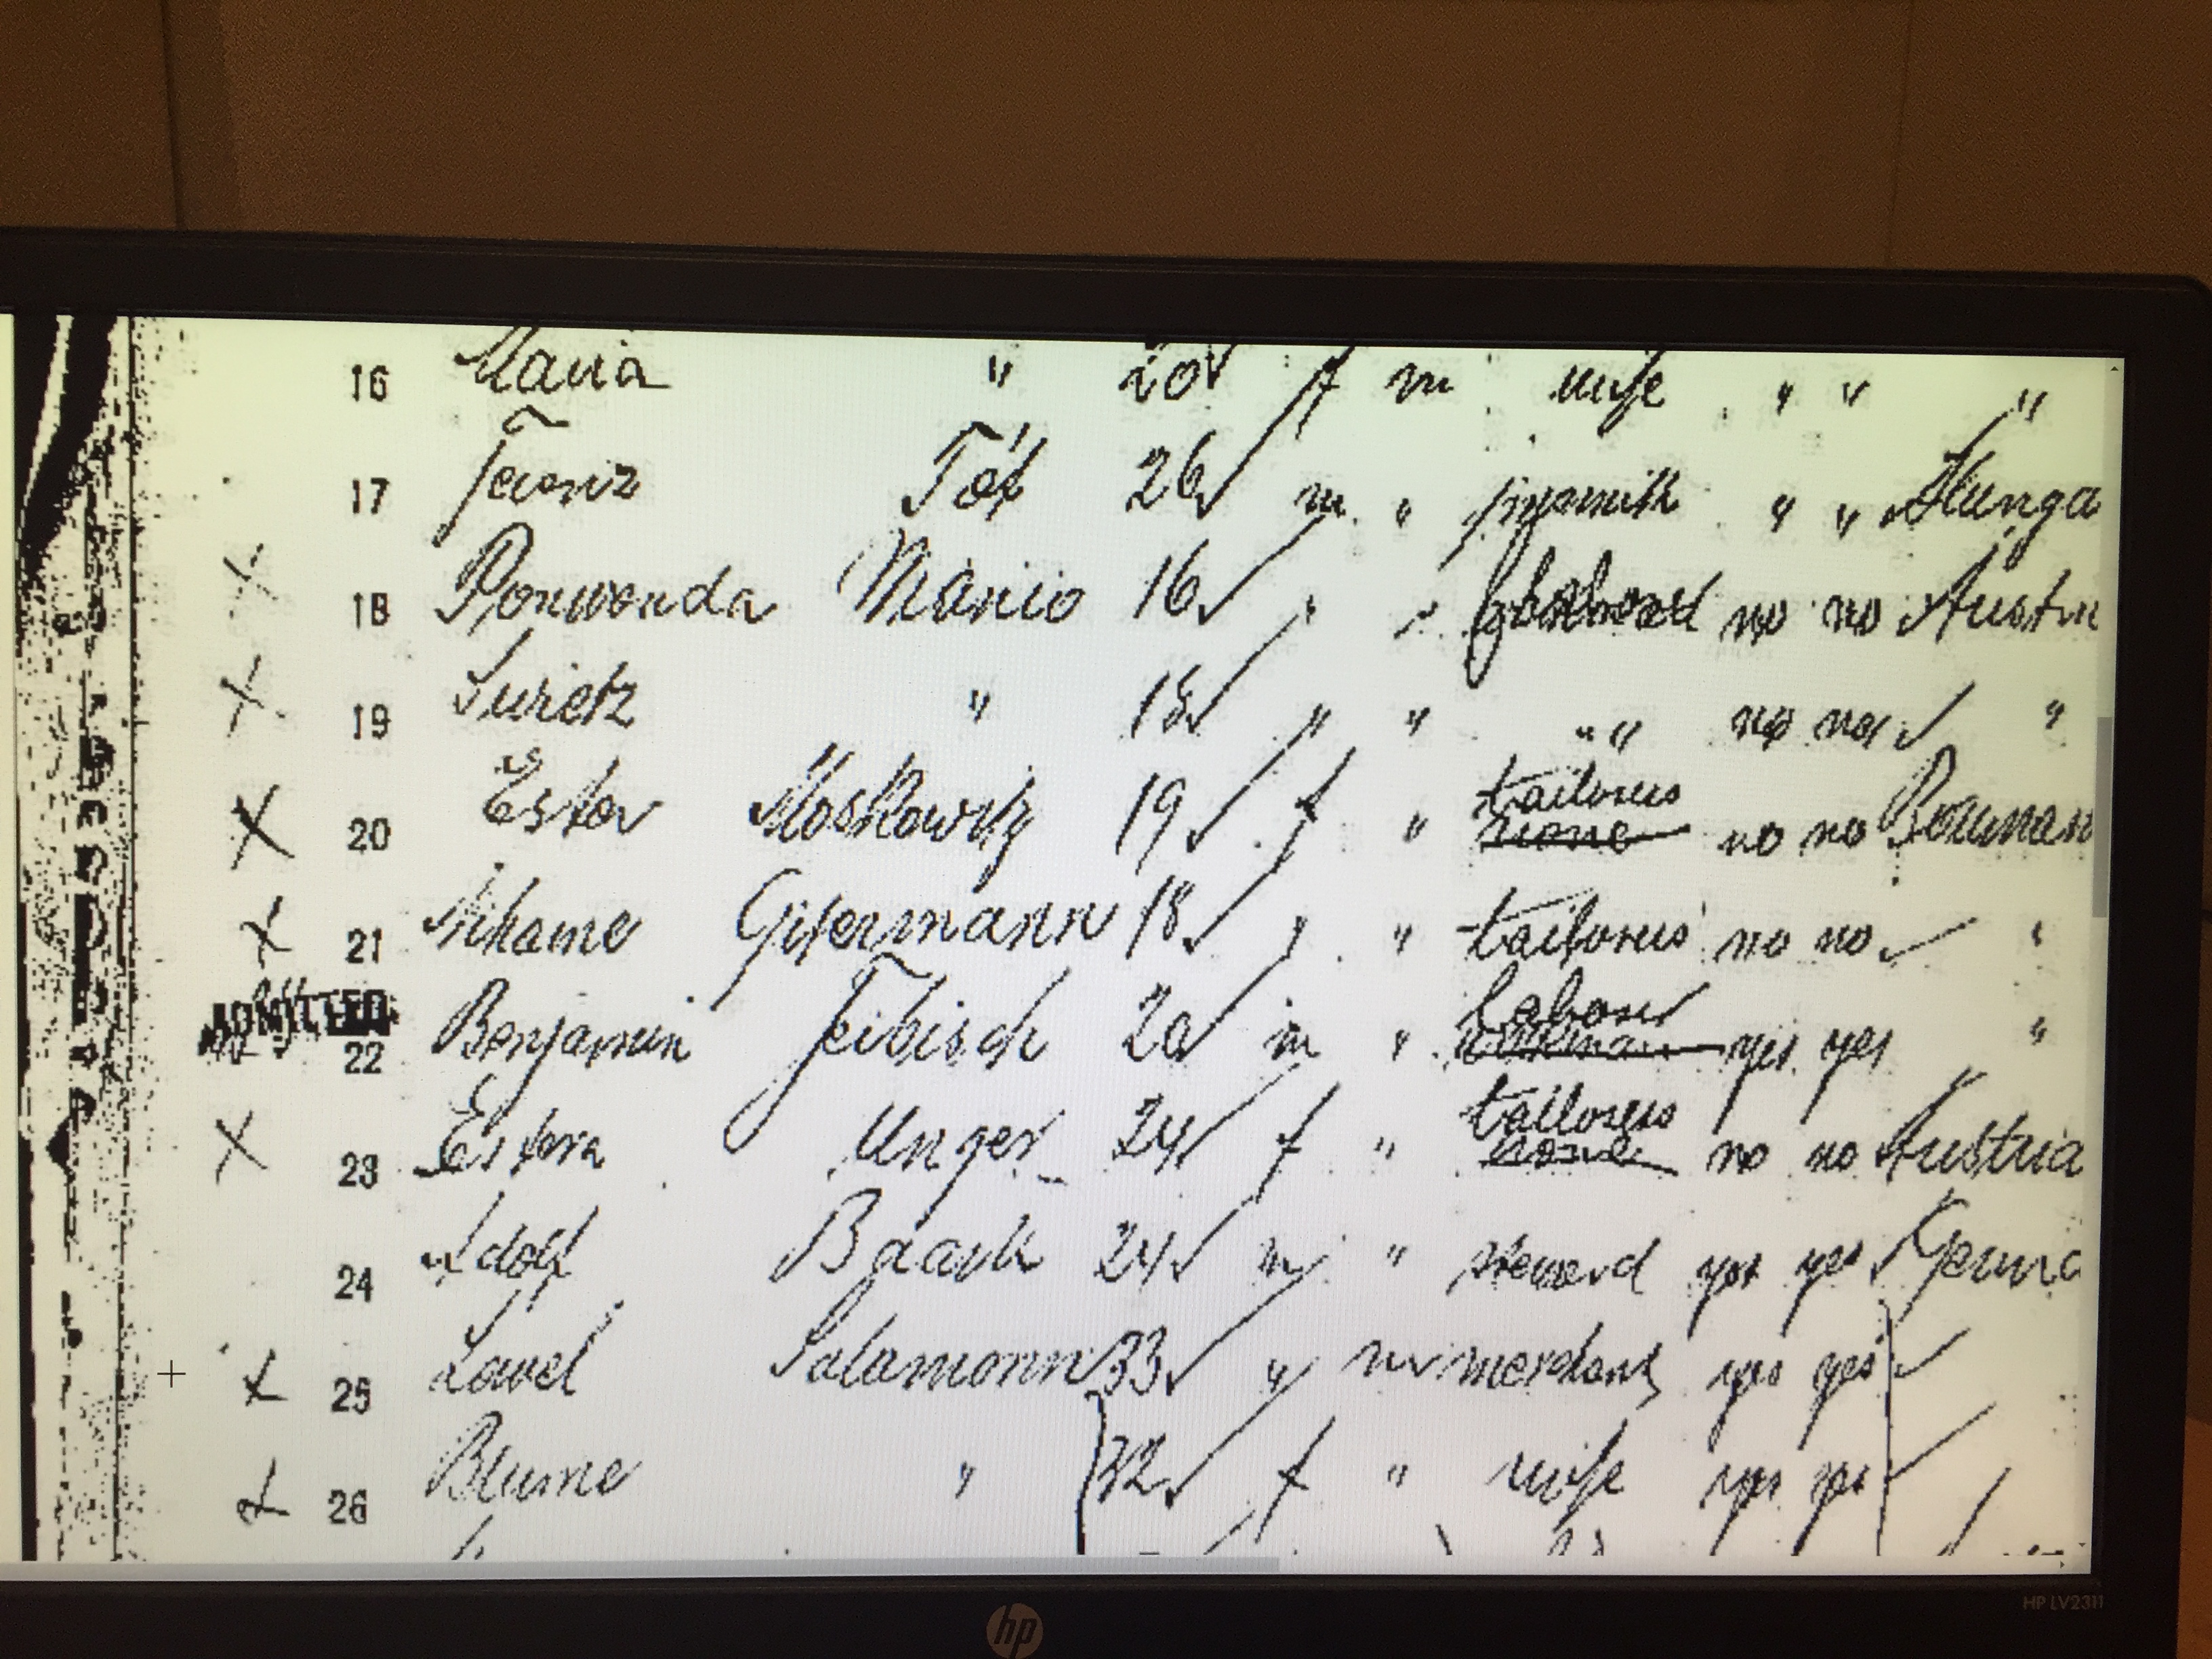 16 Maria " 20 f m wife " " "
17 Ferenz Tót 26 m " " " Hunga
18 Mario 16 " " no no Austri
19 " 18 " " " " no no "
20 Ester Moskowitz 19 f " tailoress none no no Roumani
21 18 " " tailoress no no "
ADMITTED
22 Benjamin Feibisch 20 m " labour workman yes yes "
23 Estera Unger 24 f " tailoress none no no Austria
24 Adolf 24 m " steward yes yes Germa
25 Salamonn 33 " m merchant yes yes
26 Blume " 32 f " wife yes yes
hp
HP LV2311